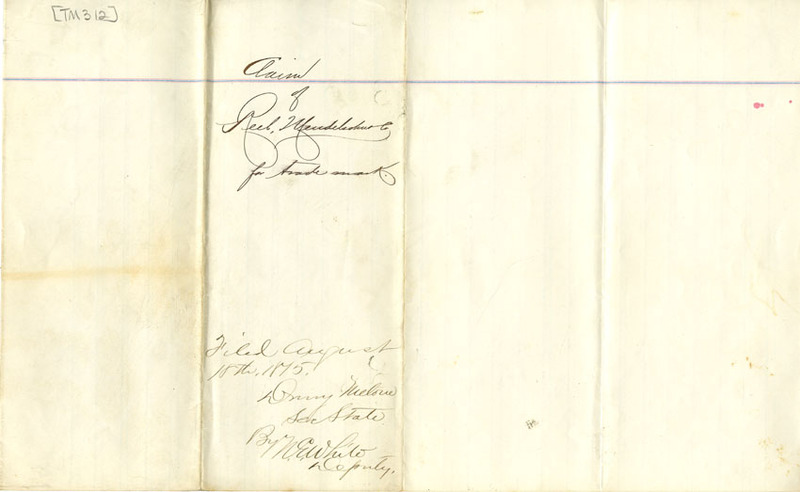 [TM312]
Claim
of
Reeb, Mendelsohn & Co
for trade mark.
Filed August
10th, 1875.
Drury Melone
Sec State
By N.E. White
Deputy.